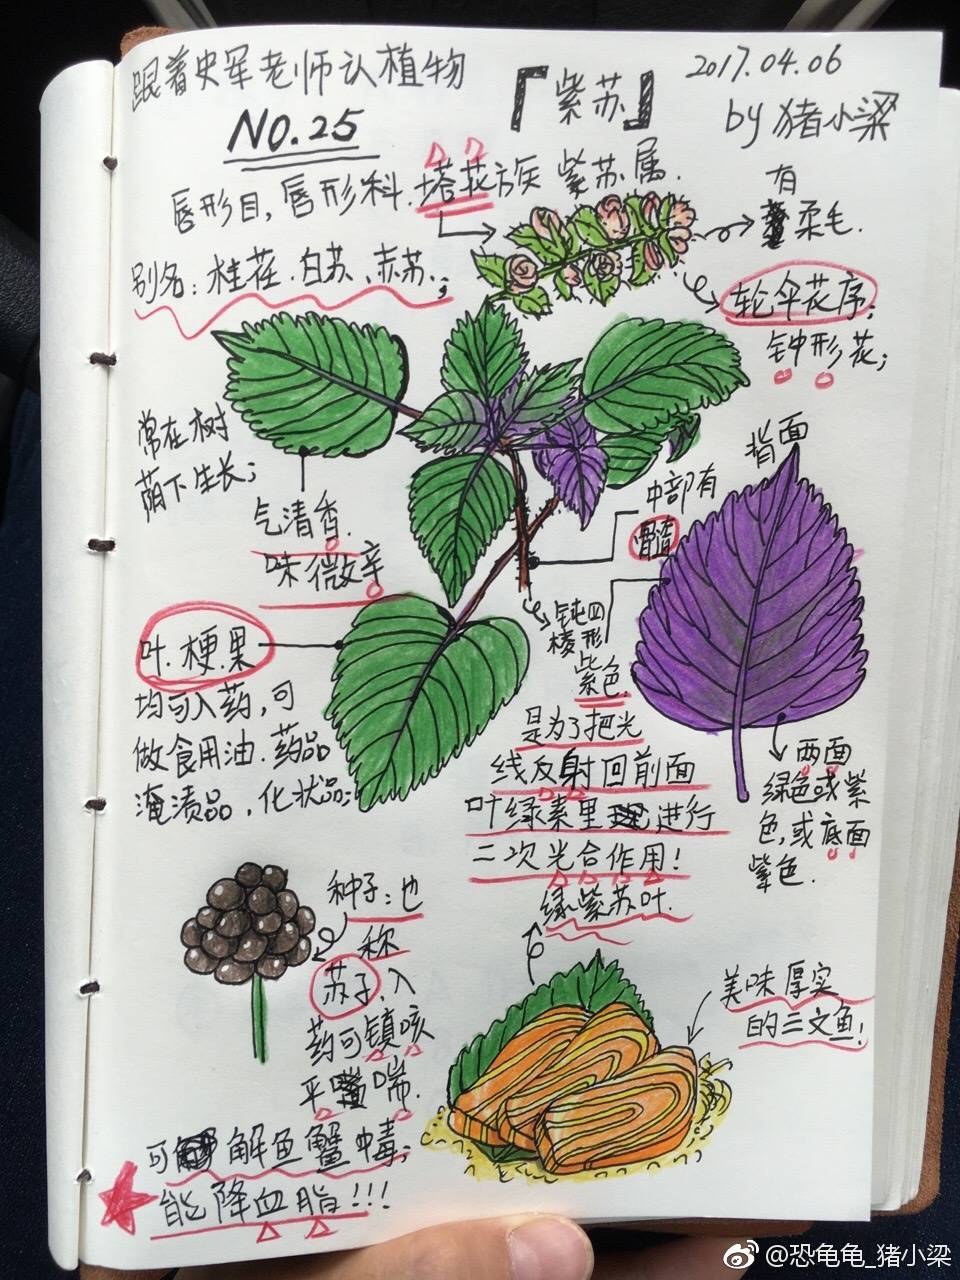 跟着史军老师认植物
NO.25
『紫苏』
2017.04.06
by 猪小梁
唇形目,唇形科.塔花族 紫苏属.
别名:桂荏.白苏、赤苏.;
有
柔毛.
轮伞花序;
钟形花;
常在树
荫下生长;
气清香.
味微辛
叶.梗.果
均可入药,可
做食用油.药品
淹渍品,化状品;
中部有
髓
钝四
棱形
背面
紫色.
是为了把光
线反射回前面
叶绿素里进行
二次光合作用!
两面
绿色或紫
色,或底面
紫色.
绿紫苏叶.
种子:也
称
苏子.入
药可镇咳
平喘.
可解鱼蟹中毒;
能降血脂!!!
美味厚实
的三文鱼!
@恐龟龟_猪小梁